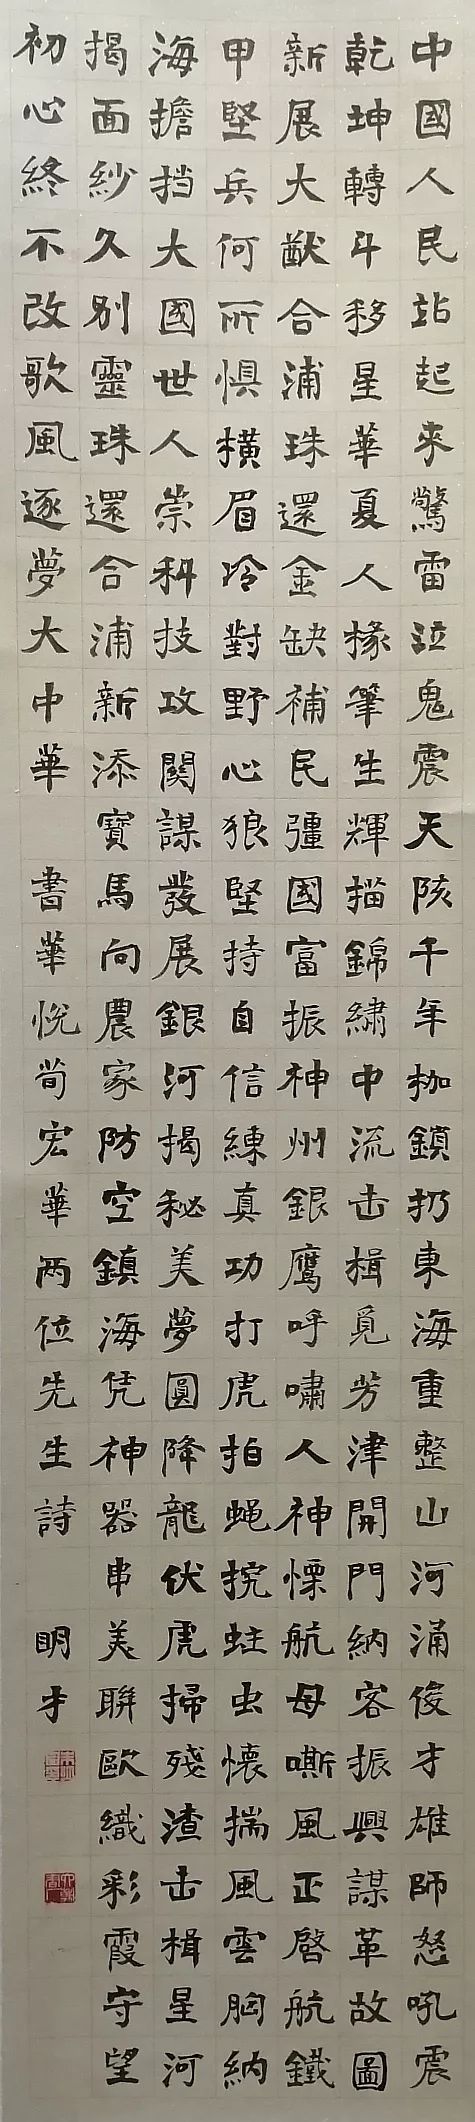 中國人民站起來驚雷泣鬼震天陔千年枷鎖扔東海重整山河涌俊才雄師怒吼震
乾坤轉斗移星華夏人椽筆生輝描錦繡中流击楫覓芳津開門納客振興謀革故圖
新展大猷合浦珠還金缺補民彊國富振神州銀鷹呼嘯人神慄航母嘶風正啓航鐵
甲堅兵何所惧橫眉冷對野心狼堅持自信練真功打虎拍蝇捥蛀虫懷揣風雲胸納
海擔挡大國世人崇科技攻関謀發展銀河揭秘美夢圓降龍伏虎掃殘渣击楫星河
揭面紗久别靈珠還合浦新添寶馬向農家防空鎮海凭神器串美聯歐織彩霞守望
初心終不改歌風逐夢大中華 書華悦荀宏華兩位先生詩 明才